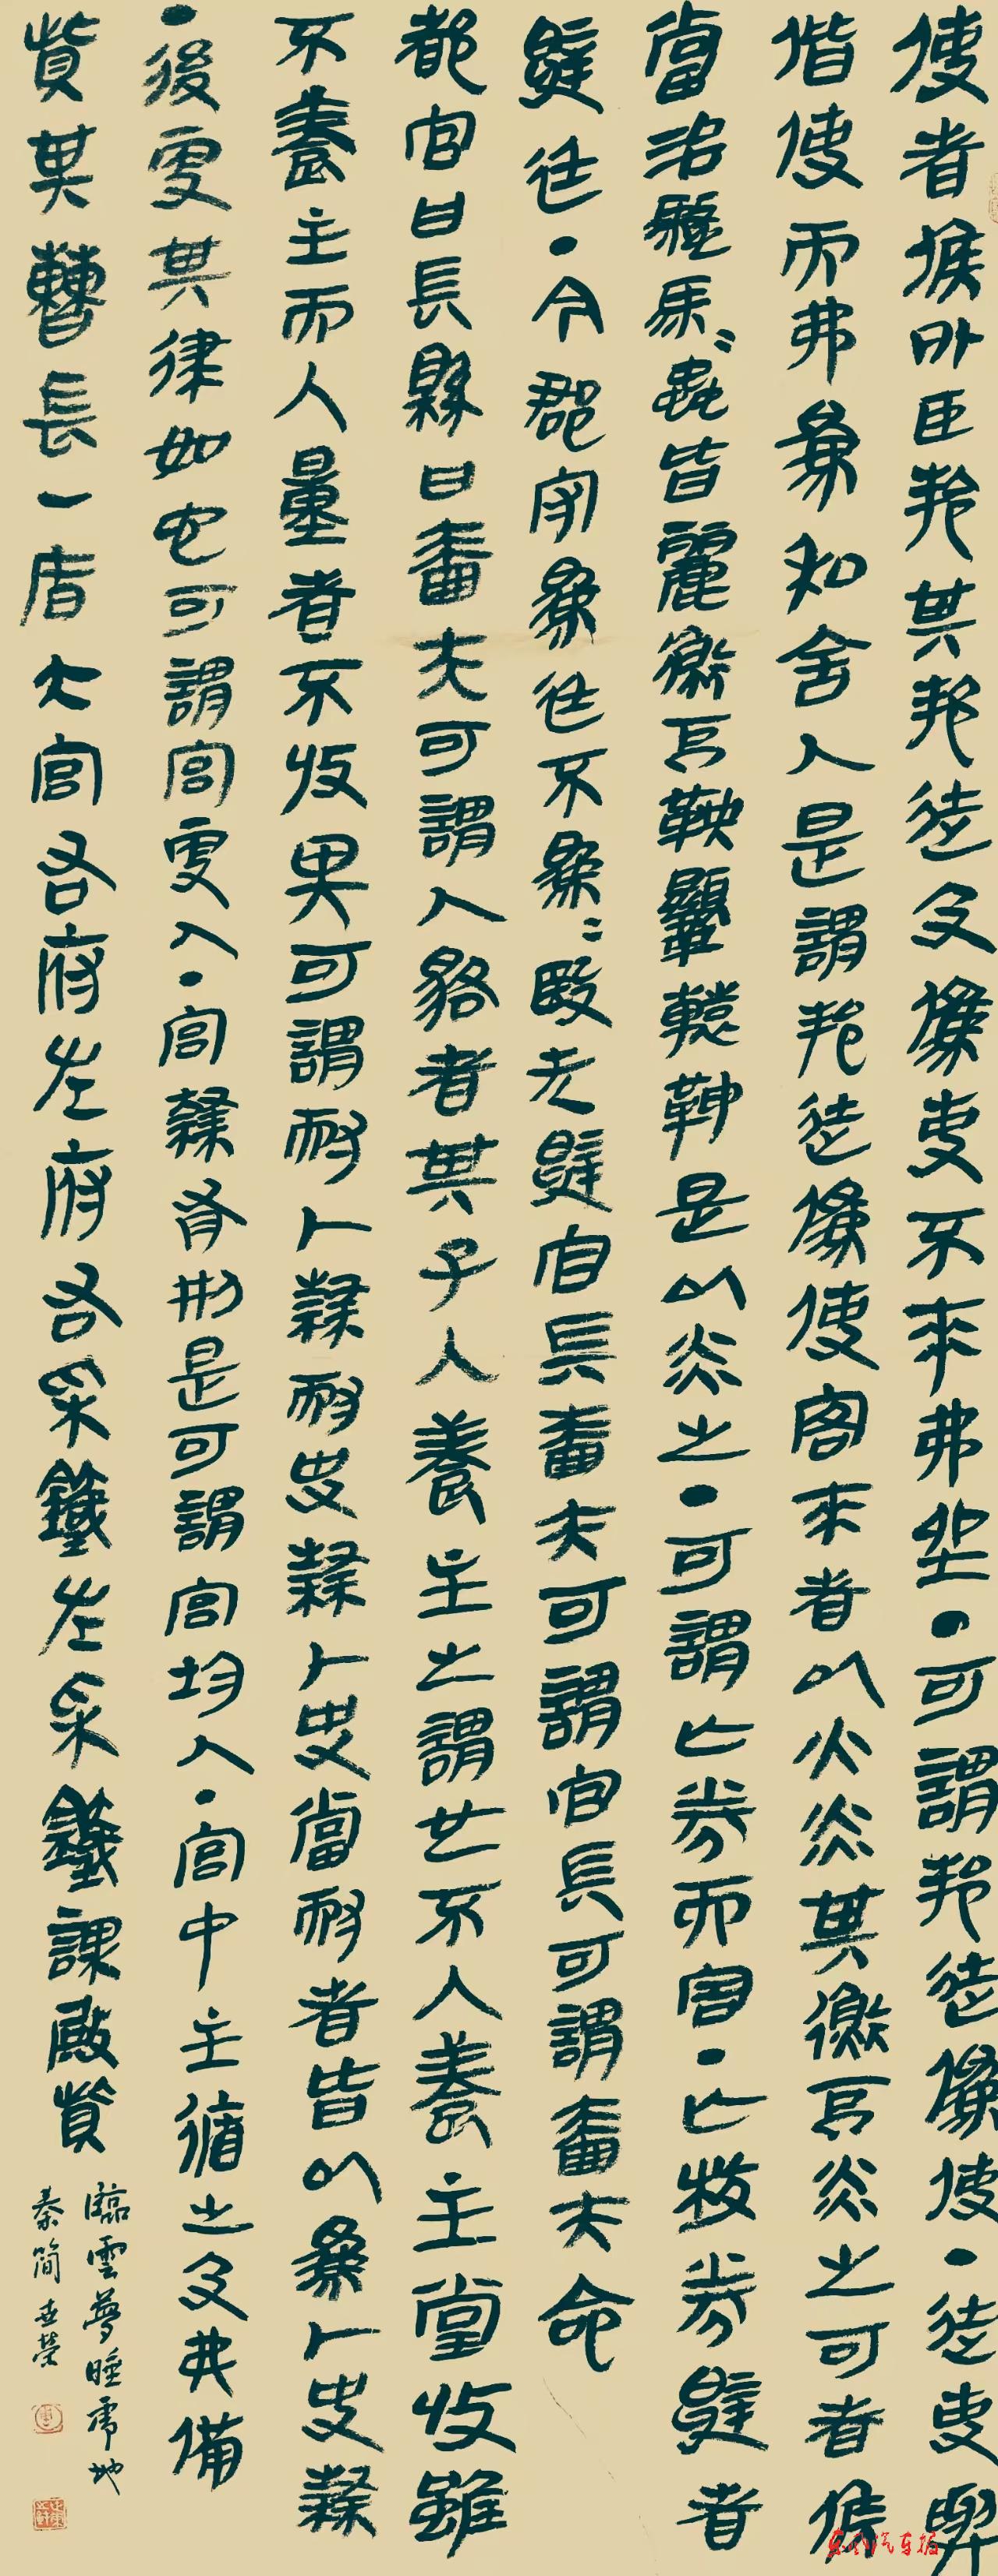 使者候外臣邦其邦徒及偽吏不來弗坐·可謂邦徒偽使·徒吏與
偕使而弗為私舍人是謂邦徒偽使客來者以火炎其衡厄炎之可者侯
當治騷馬=蟲皆麗衡厄鞅轅靷是以炎之·可謂亡券而害·亡校券右者
辟廷·今郡守為廷不為=殹者辟宦長嗇夫可謂官長可謂嗇夫命
都官曰長縣曰嗇夫可謂人貉者其子入養主之謂也不入養主當收雖
不養主而入量者不收畀可謂耐卜隸耐史隸卜史當耐者皆以為卜史隸
·後更其律如它可謂宮更人·宮隸有刑是可謂宮均人·宮中主循之及弗備
貲其曹長一盾大官右府左府右采鐵左采鐵課殿貲
臨雲夢睡虎地
秦簡
東風汽車報